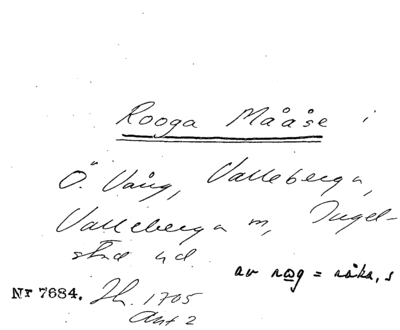 Rooga Mååse i
Ö. Vång, Valleberga,
Valleberga sn, Ingel-
stad hd.
av rog = råka, s
Nr 7684. Jb. 1705
Ant 2